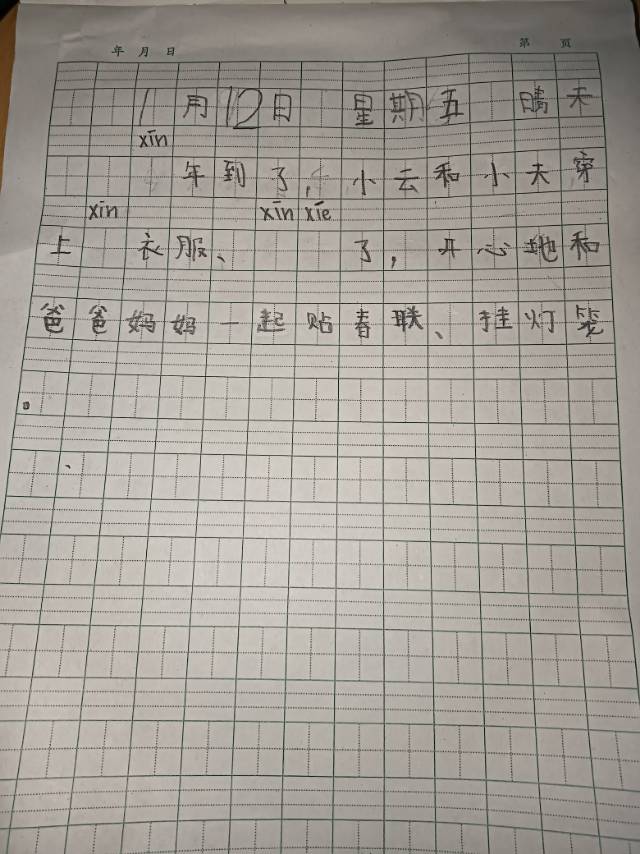 年 月 日 第 页
1月12日 星期五 晴天
xīn
年到了，小云和小天穿
xīn xīn xié
上 衣服、 了，开心地和
爸爸妈妈一起贴春联、挂灯笼
。